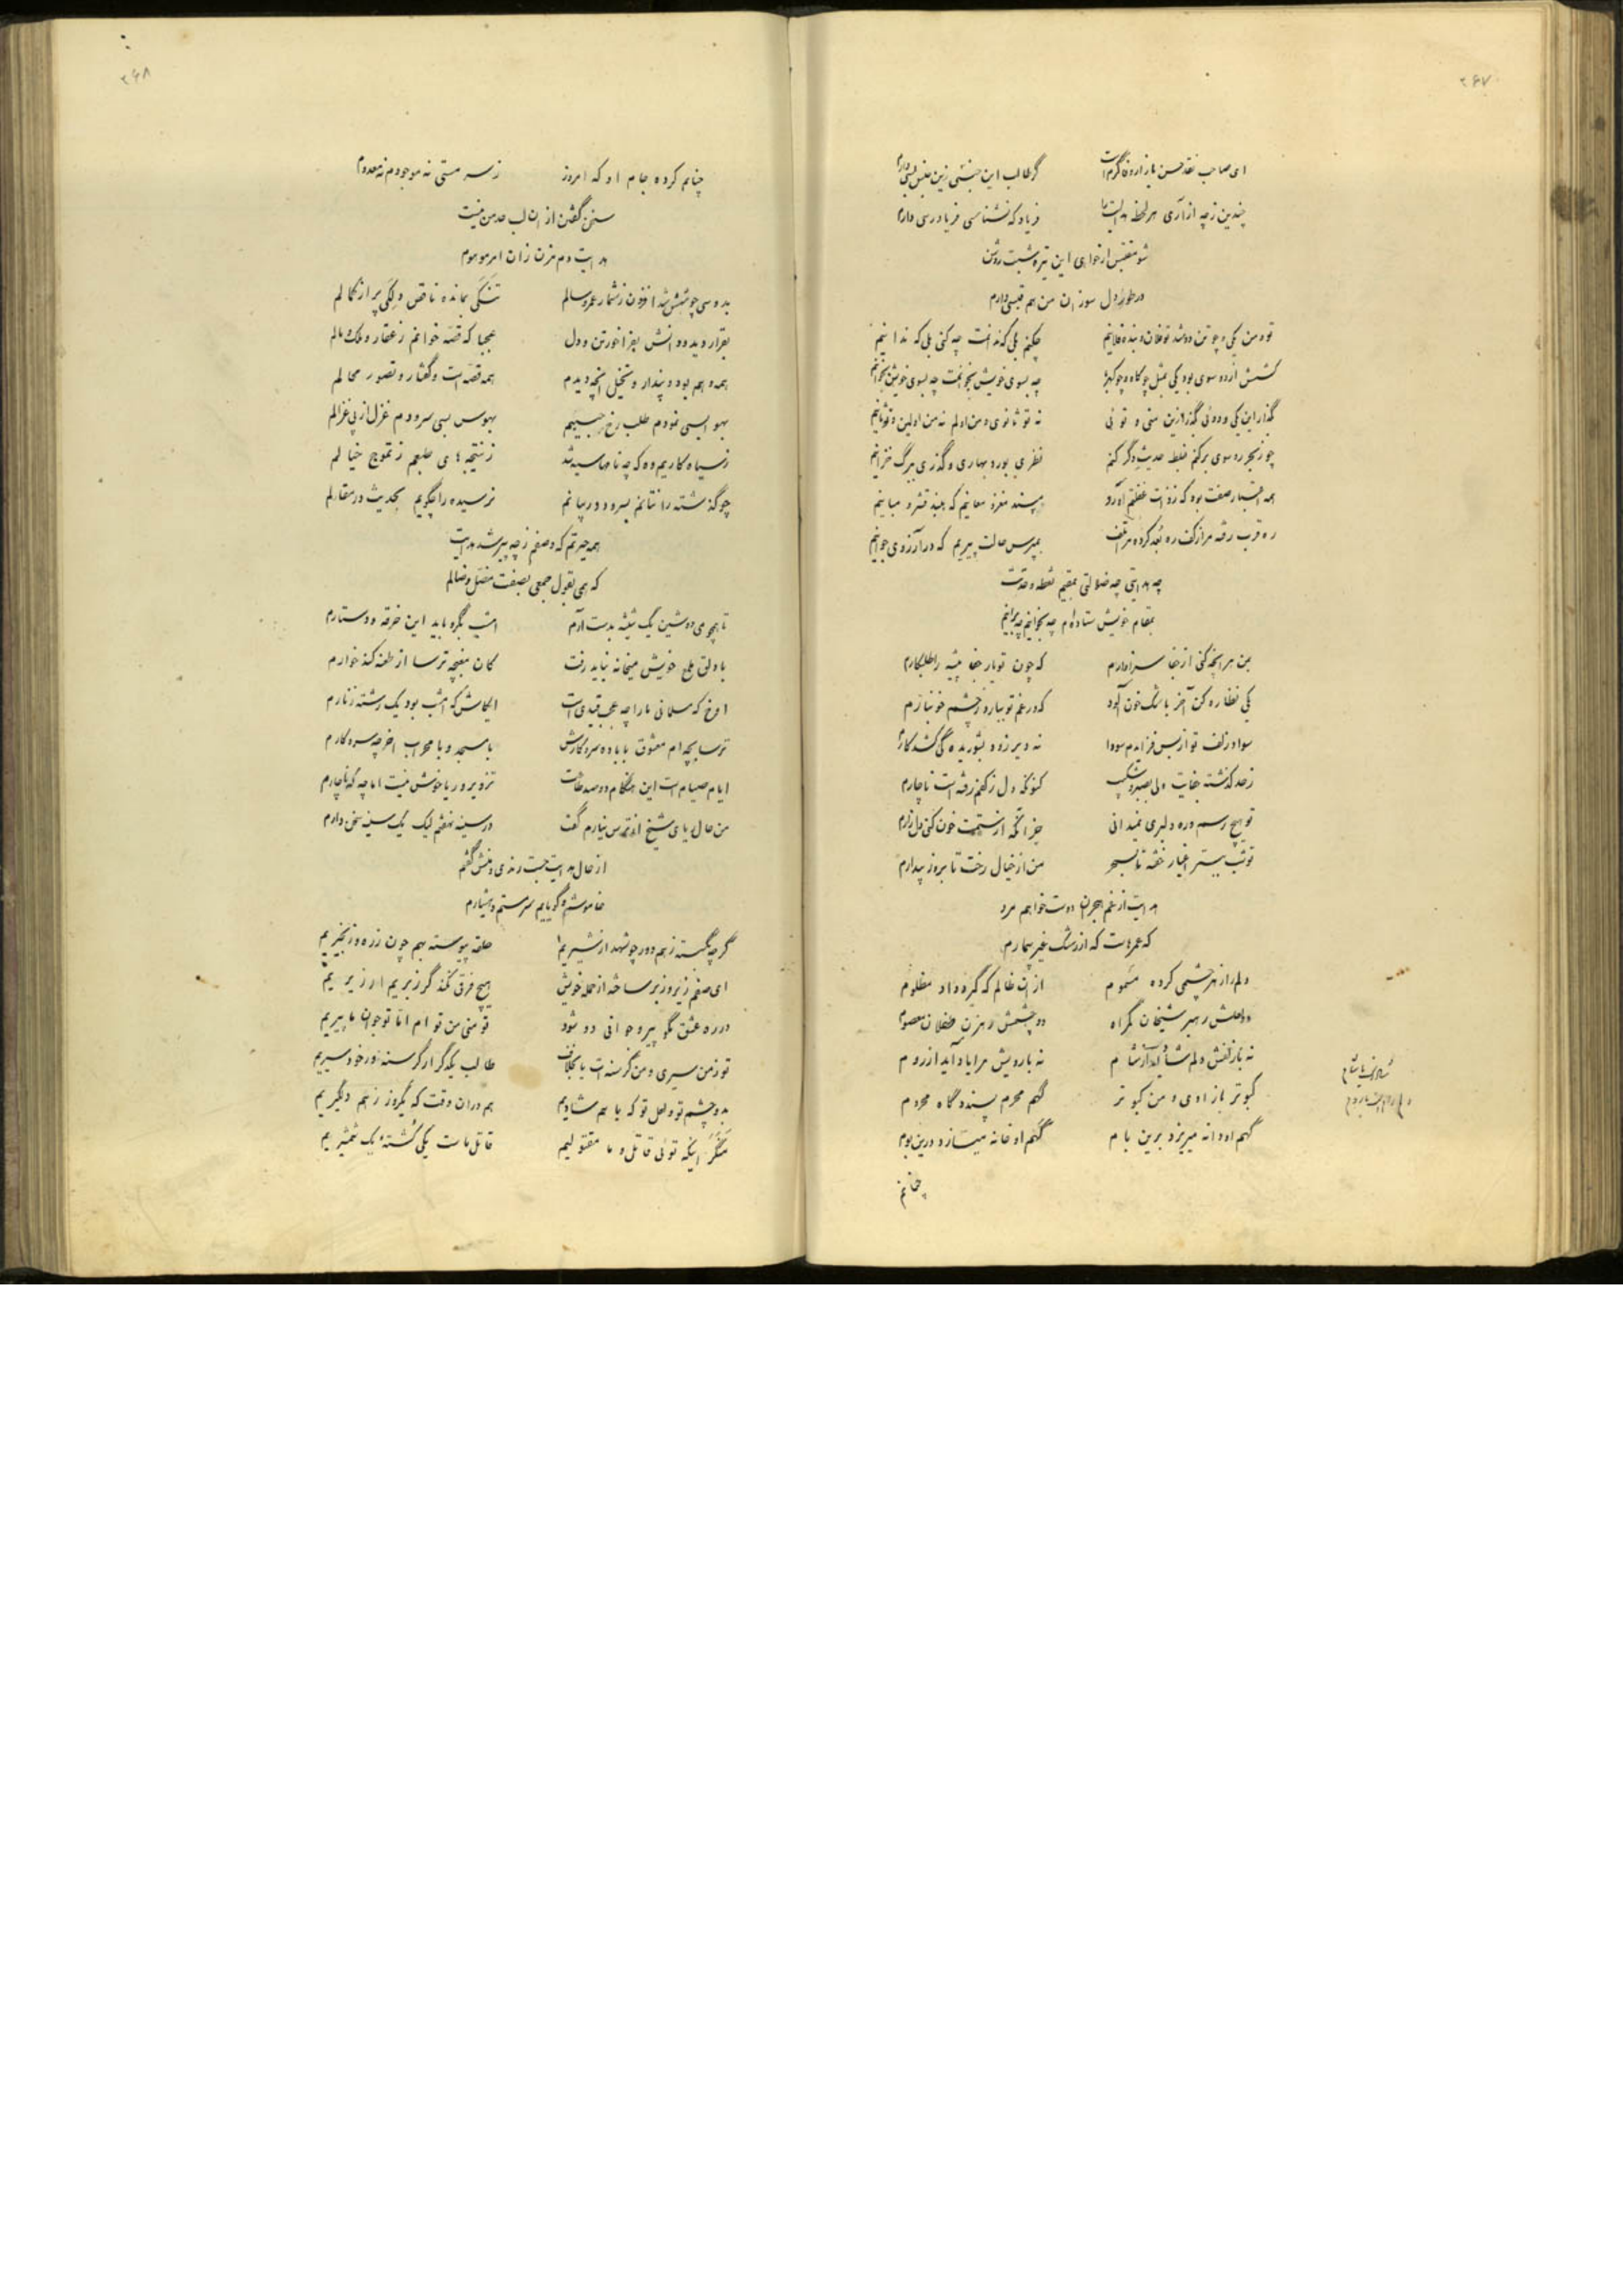 ۲۶۷
ای صاحب نقد حسن بازار وفا گرم است گر طالب این جنسی زین جنس بسی دارم
چندین ز چه آزاری هر لحظه هدایت را فریاد که نشناسی فریادرسی دارم
شو مقتبس ار خواهی این تیره شبت روشن
در طور دل سوزان من هم قبسی دارم
تو و من یکی و چو تن دو شد تو فلان و بنده فلانیم چکنم بلی که ندانمت چه کنی بلی که ندانیم
کشش از دو سوی بود یکی بمثل چو کاه و چو کهربا چه بسوی خویش بخوانمت چه بسوی خویش بخوانیم
بگذار این یکی و دوئی بگذر ازین منی و توئی نه تو ثانوی و من اولم نه من اولین و تو ثانیم
چو ز بحر رو سوی بر کنم غلط حدیث دگر کنم نظری بود و بهاری و گذری ببرگ خزانیم
همه صفت بود که ز ذات غفلتم آورد پسند مغز معانیم که بقشر و مبانیم
ره قرب رفته مرا ز کف ره بعد کرده مرا تلف بمپرس حالت پیریم که در آرزوی جوانیم
چه هدایتی چه ضلالتی بمقیم نقطه وحدت
بمقام خویش ستاده‌ام چه بخوانیم چه برانیم
بمن هر آنچه کنی از جفا سزاوارم که چون تو یار جفا پیشه را طلبکارم
یکی نظاره کن آخر باشک خون آلود که در غم تو ببارد ز چشم خونبارم
سواد زلف تو از بس فزایدم سودا نه دیر زود بشوریدگی کشد کارم
ز حد گذشته جفایت ولی بصبر و شکیب کنونکه دل ز کفم رفته است ناچارم
تو هیچ رسم و ره دلبری نمیدانی جز آنکه از ستمت خون کنی دل زارم
تو شب ببستر اغیار خفته تا بسحر من از خیال رخت تا بروز بیدارم
هدایت از غم هجران دوست خواهم مرد
که عمرهاست که از رشک غیر بیمارم
دلم را زهر چشمی کرده مسموم از آن ظالم که گیرد داد مظلوم
دو لعلش رهبر شیخان گمراه دو چشمش رهزن طفلان معصوم
نه با زلفش دلم شاید از شام نه با رویش مرا یاد آید از روم
کبوترباز اوی و من کبوتر گهم محرم پسندد گاه محروم
گهم او دانه میریزد برین بام گهم او خانه میسازد درین بوم
چنانم
۲۶۸
چنانم کرده جام او که امروز ز سرمستی نه موجودم نه معدوم
سخن گفتن از آن لب حد من نیست
هدایت دم مزن زان امر موهوم
بد و سی چو شش شد افزون ز شمار عمر و سالم تنکی بمانده ناقص دلکی پر از کمالم
بقرار دید و دانش بفراخور تن و دل عجبا که قصه خوانم ز عقار و ملک و مالم
همه وهم بود و پندار و تخیل آنچه دیدم همه قصه است و گفتار و تصور محالم
بهوایسی نمودم طلب رخ حبیبم بهوس بسی سرودم غزل از پی غزالم
ز سیاهکاریم وه که چه نامها سیه شد ز نتیجهای طبعم ز تموج خیالم
چو گذشته را نتانم بسرود و در بیانم نرسیده را چگویم بحدیث در مقالم
همه حیرتم که وصفم ز چه پیر شد هدایت
که همی بقول جمعی بصفت مضل و ضالم
تا همچو می دوشین یک شیشه بدست آرم امشب بگرو باید این خرقه و دستارم
با دلق ملمع خویش میخانه نباید رفت کان مغبچه ترسا از طعنه کند خوارم
آوخ که مسلمانی ما را چه عجب قیدی است ایکاش که امشب بود یک رشته زنارم
ترسابچه‌ام معشوق با باده سر و کارش با مسجد و با محراب آخر چه سر و کارم
ایام صیام است این هنگام دو صد طاعت تزویر و ریا خوش نیست اما چه که ناچارم
من حال با ای شیخ از ترس نیارم گفت در سینه نهفتم لیک یک سینه سخن دارم
از حال هدایت جست رندی و منش گفتم
خاموشم و گویایم سرمستم و هشیارم
گرچه بگسسته ز هم دور چو شهد از شیریم حلقه پیوسته بهم چون زره و زنجیریم
ای صنم زیر و زبر ساخته از جمله خویش هیچ فرقی نکند گر زبریم ار زیریم
در ره عشق مگو پیر و جوانی دو شود تو منی من تو ام اما تو جوان ما پیریم
تو ز من سیری و من گرسنه‌ات یا بخلاف طالب یکدگر ار گرسنه ور خود سیریم
بدو چشم تو و لعل تو که با هم شادیم هم در آن وقت که یکروز ز هم دلگیریم
منگر اینکه توئی قاتل و ما مقتولیم قاتل ماست یکی کشته یک شمشیریم